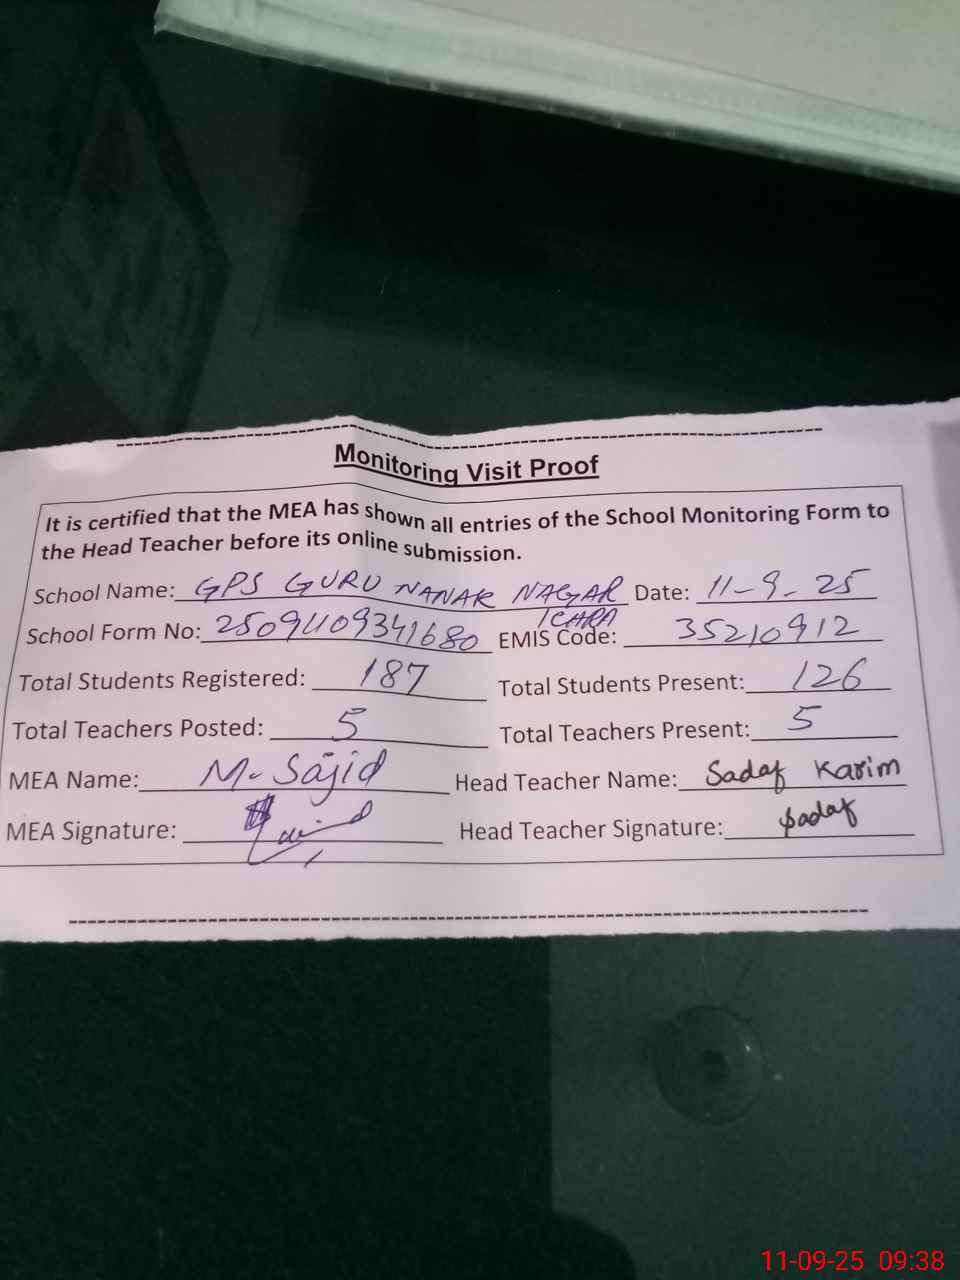 Monitoring Visit Proof
It is certified that the MEA has shown all entries of the School Monitoring Form to
the Head Teacher before its online submission.
School Name: GPS GURU NANAK NAGAR Date: 11-9-25
ICHRA
School Form No: EMIS Code: 35210912
Total Students Registered: 187 Total Students Present: 126
Total Teachers Posted: 5 Total Teachers Present: 5
MEA Name: M. Sajid Head Teacher Name: Sadaf Karim
MEA Signature: Head Teacher Signature: Sadaf
11-09-25 09:38